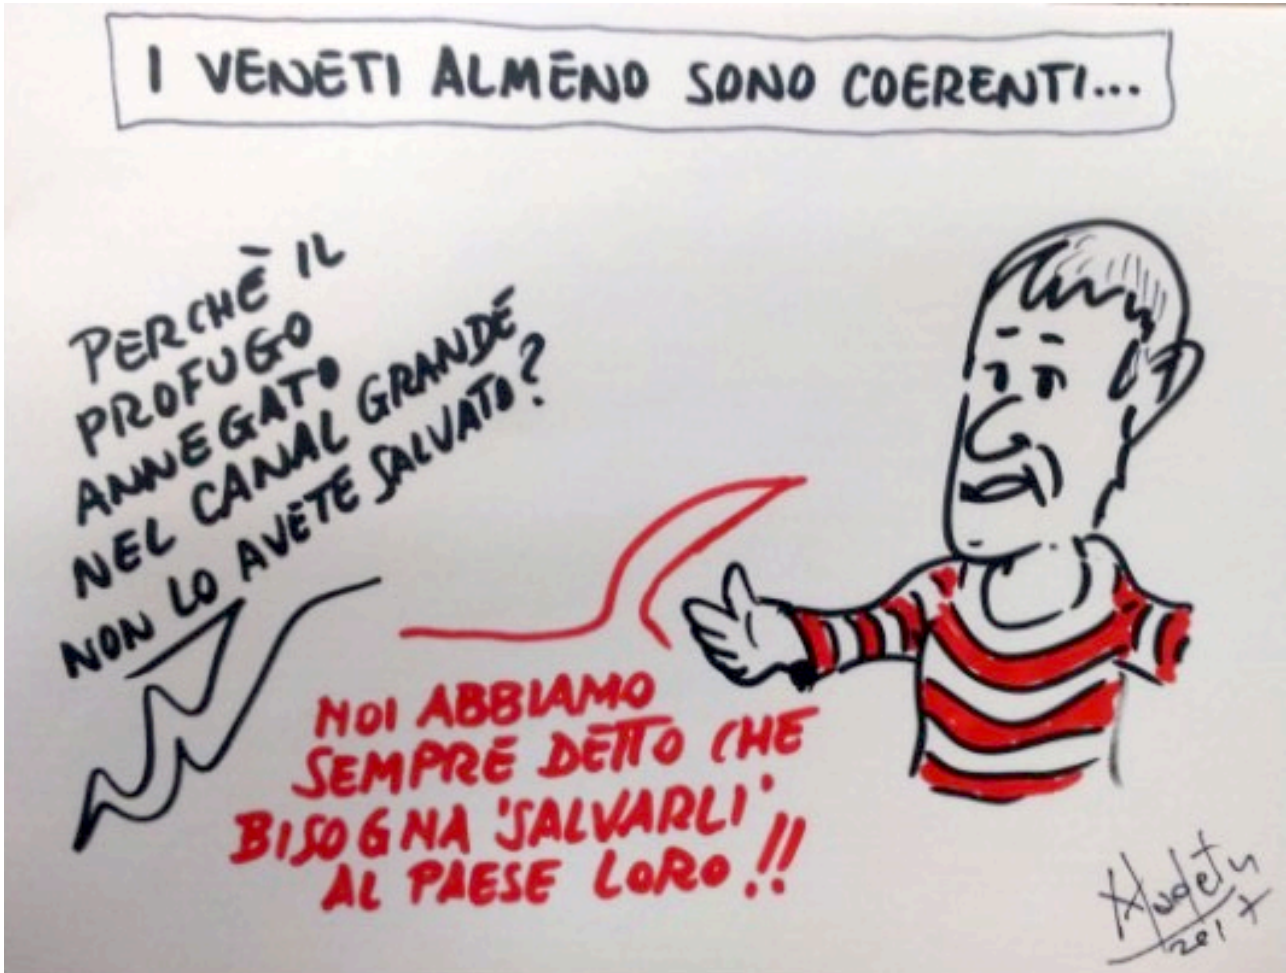 I VENETI ALMENO SONO COERENTI...
PERCHÈ IL
PROFUGO
ANNEGATO
NEL CANAL GRANDE
NON LO AVETE SALVATO?
NOI ABBIAMO
SEMPRE DETTO CHE
BISOGNA 'SALVARLI'
AL PAESE LORO!!
2017